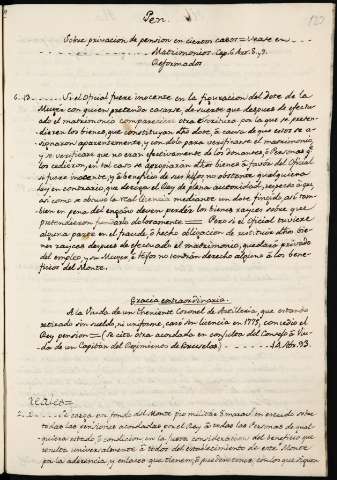 Pen.
120
Sobre privacion de pension en ciertos casos = vease en
Matrimonios. Cap. 6. Art. 8. y 9.
Reformados
6. 13. Si el oficial fuere inocente en la figuracion del dote de la
Muger con quien pretenda casarse, de suerte que despues de efectua
do el matrimonio compareciere otra Escritura por la que se preten-
dieren los bienes, que constituyan dho dote, á causa de que estos se
sionaron aparentemente, y con dolo para verificarse el matrimonio,
y se verificare que no eran efectivamente de los Donantes, ó Personas q.
los cedieron, en tal caso se apropiarán dhos bienes á favor del oficial
si fuere inocente, y á beneficio de sus hijos, no obstante qualquiera
ley en contrario, que deroga el Rey de plena autoridad, respecto á que,
asi como se obtuvo la real licencia mediante un dote fingido, asi tam-
bien en pena del engaño deven perder los bienes raices sobre que
pretendieron fundarlo dolosamente = Pero si el oficial tuviere
alguna parte en el fraude, ó hecho obligacion de restituir dhos bie-
nes raices despues de efectuado el matrimonio, quedará privado
del empleo, y su Muger, é Hijos no tendrán derecho alguno á los bene-
ficios del Monte.
Gracia extraordinaria.
A la Viuda de un Theniente Coronel de Artilleria, que estando
retirado sin sueldo, ni uniforme, casó sin licencia en 1775, concedio el
Rey pension = (se cita otra acordada en consulta del Consejo á Viu-
da de un Capitan del Regimiento de Bruselas) 14. Abr. 93.
Se carga por fondo del Monte pio militar 8 maravs. en escudo sobre
todas las pensiones acordadas por el Rey á todas las Personas de qual-
quiera estado ó condicion, en la justa consideracion del beneficio que
resulta universalmente á todos del establecimiento de este Monte
por la adherencia, y enlaces que tienen, ó pueden tener con los que siguen